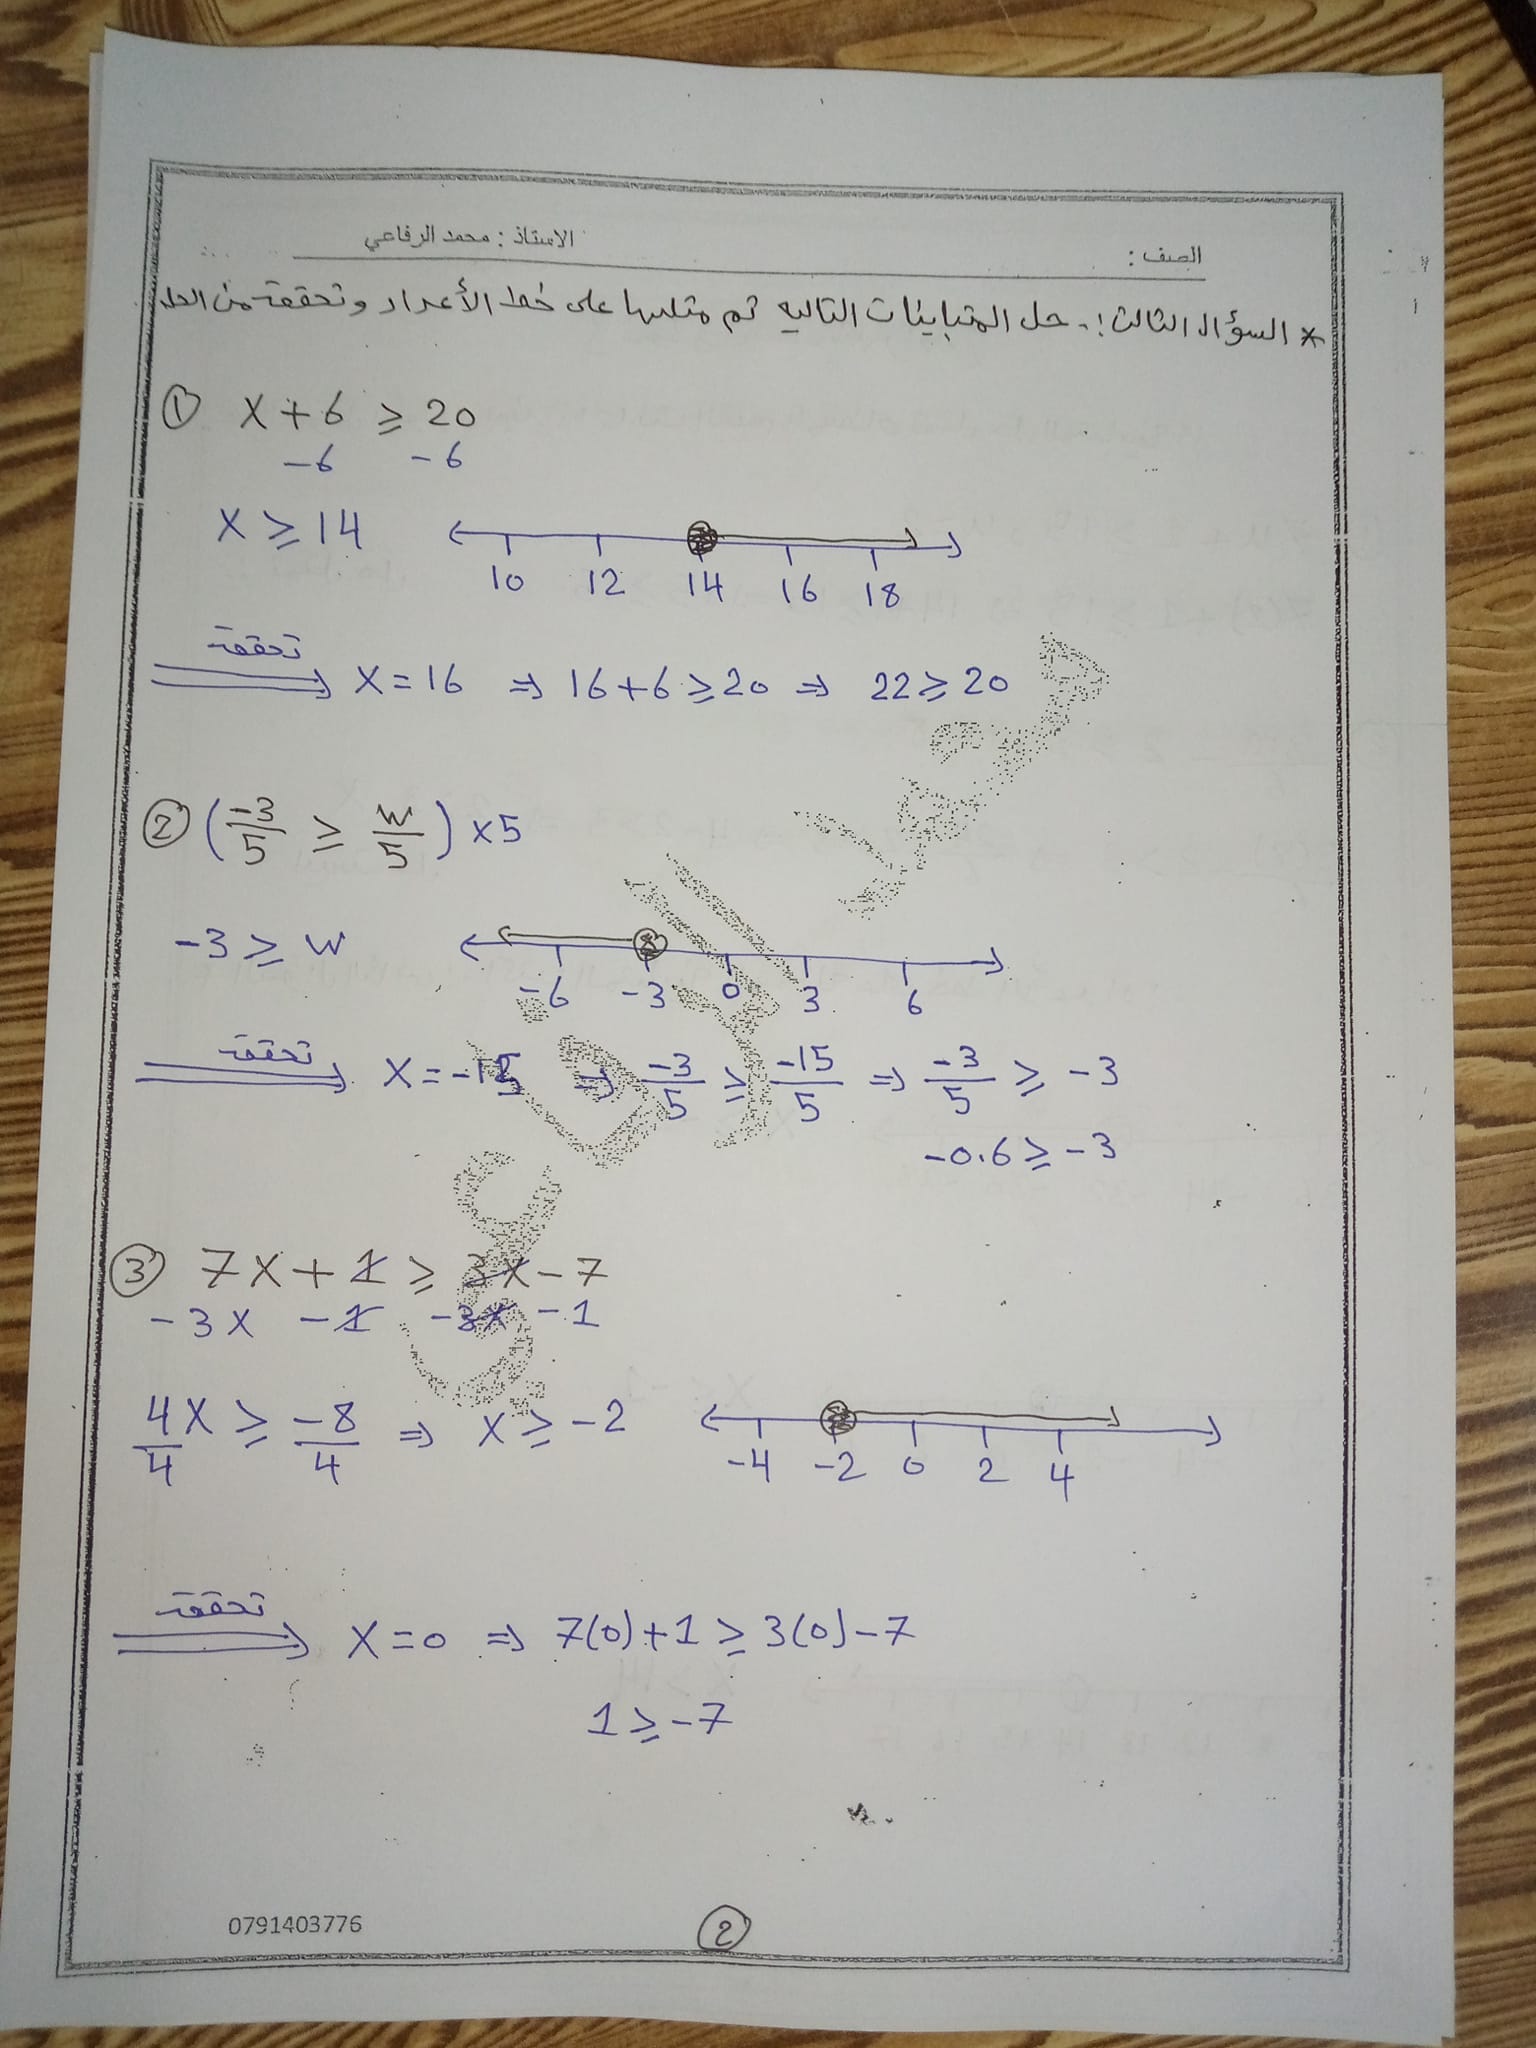 الصف : الاستاذ : محمد الرفاعي
* السؤال الثالث :- حل المتباينات التاليه ثم مثلها على خط الأعداد وتحقق من الحل
① x + 6 ≥ 20
-6 -6
x ≥ 14
10 12 14 16 18
تحقق
x = 16 ⇒ 16 + 6 ≥ 20 ⇒ 22 ≥ 20
② (-3/5 ≥ w/5) × 5
-3 ≥ w
-6 -3 0 3 6
تحقق
x = -15 ⇒ -3/5 ≥ -15/5 ⇒ -3/5 ≥ -3
-0.6 ≥ -3
③ 7x + 1 ≥ 3x - 7
-3x -1 -3x -1
4x/4 ≥ -8/4 ⇒ x ≥ -2
-4 -2 0 2 4
تحقق
x = 0 ⇒ 7(0) + 1 ≥ 3(0) - 7
1 ≥ -7
0791403776
②